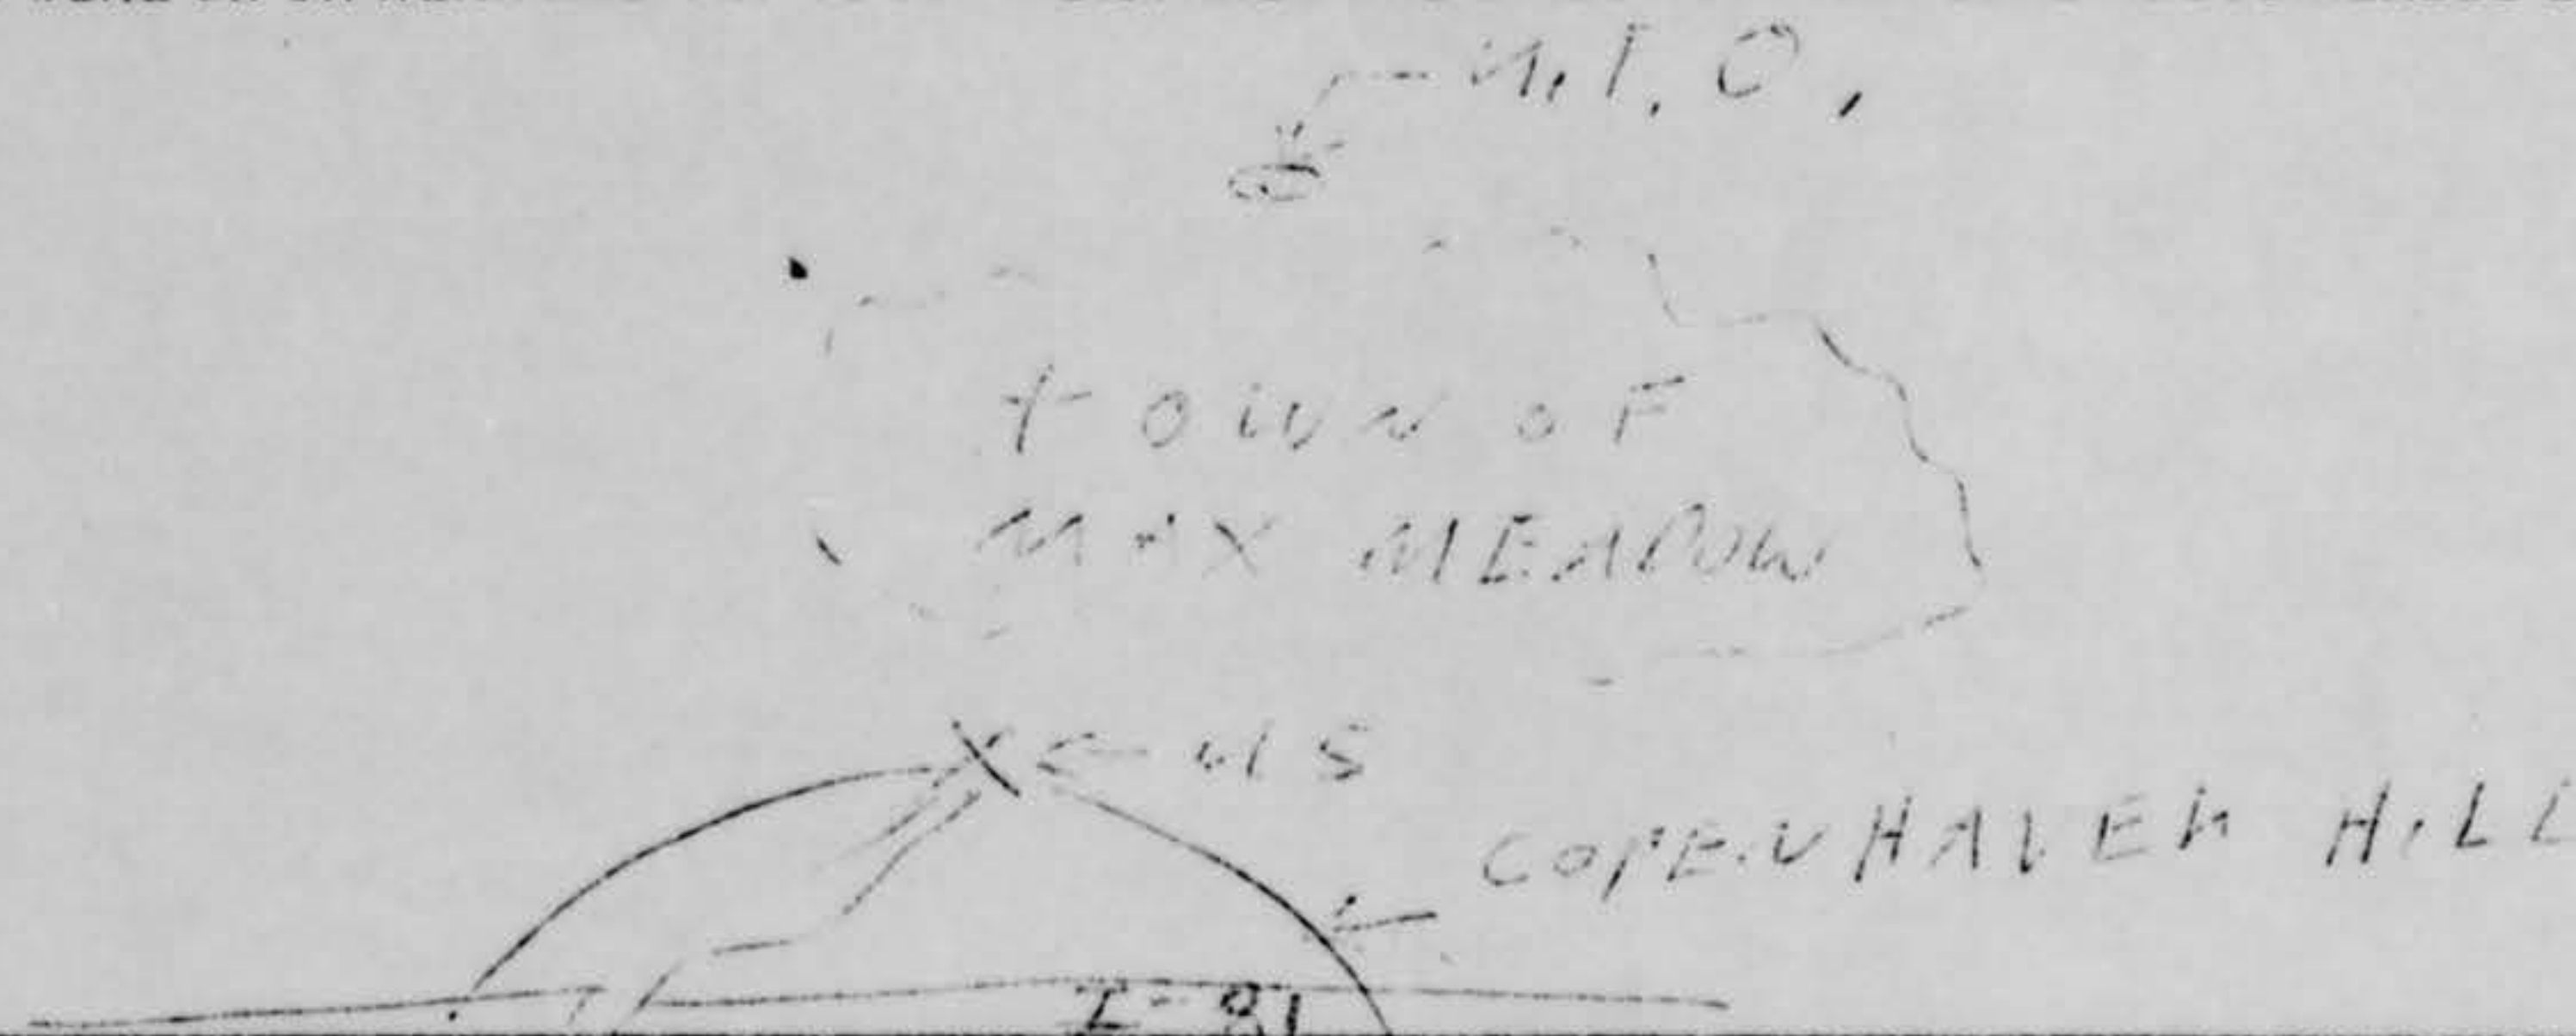 U.F.O.
tOWN OF
MAX MEADOW
US
COPENHAVER HILL
I-81